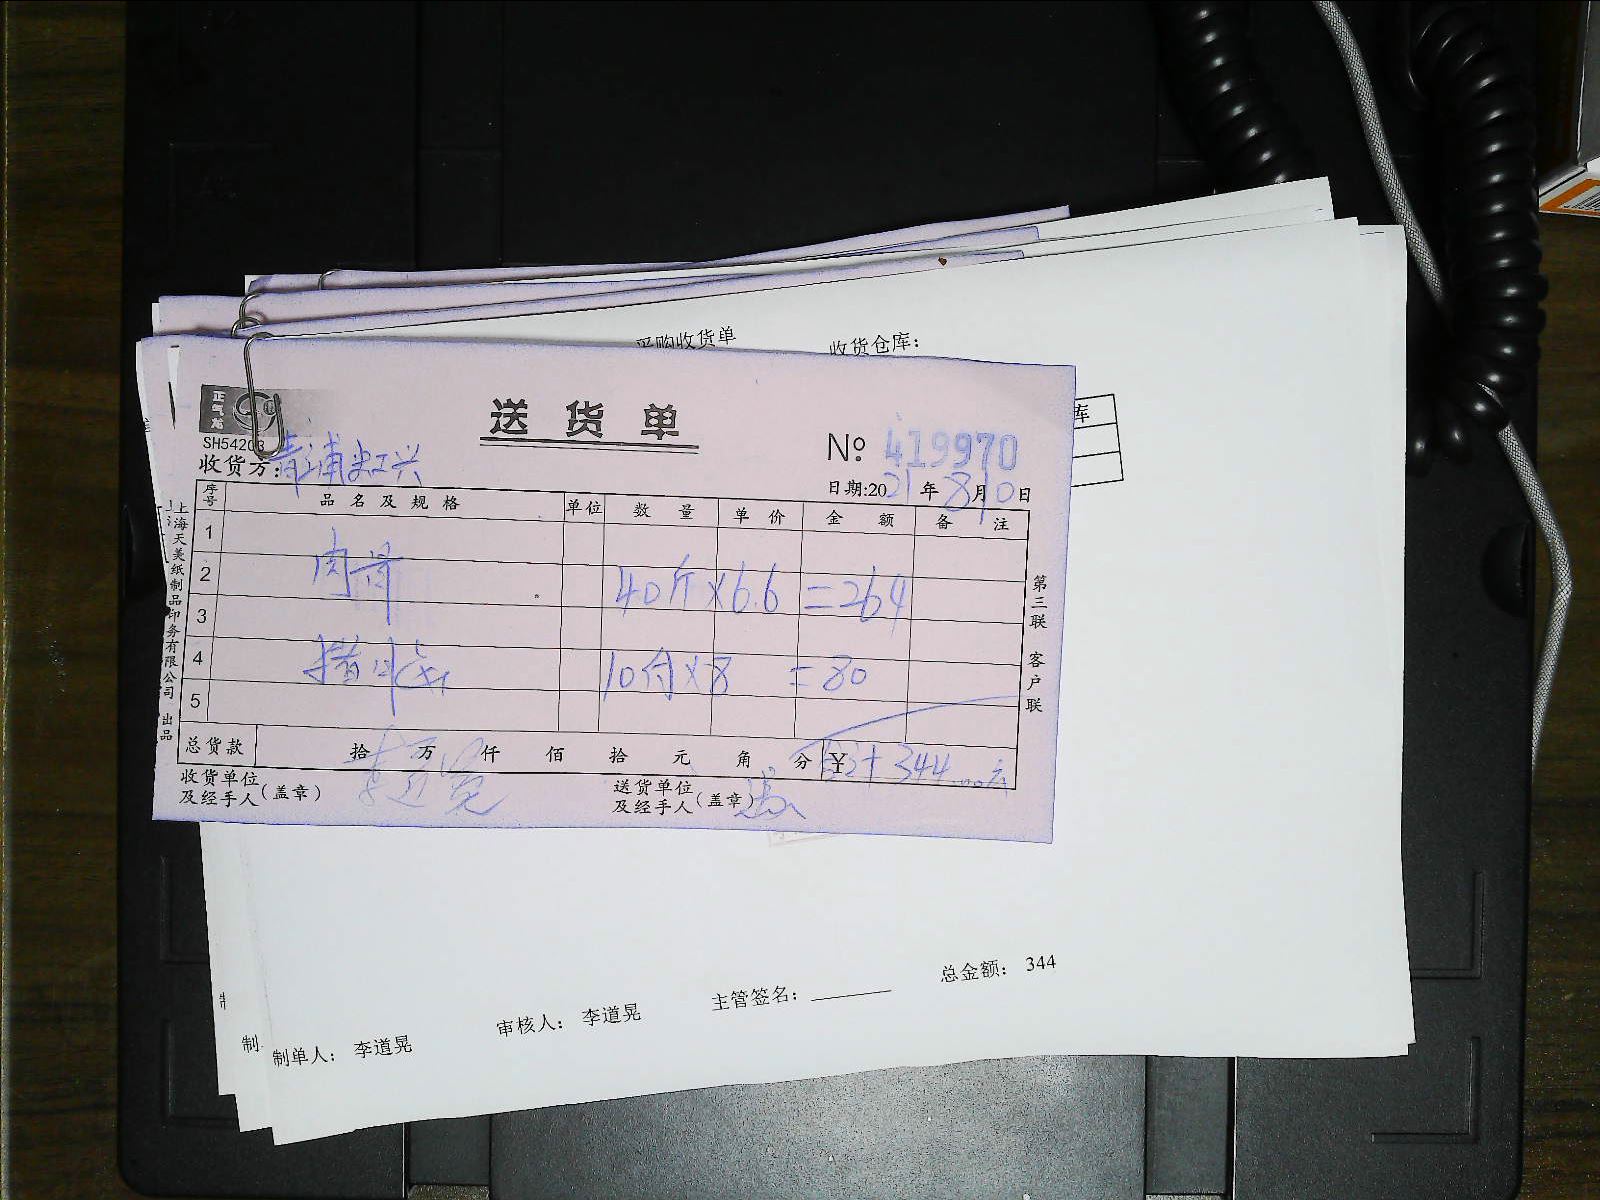 采购收货单
收货仓库：
库
正气龙
SH54203
送货单
№ 419970
收货方：青浦
日期:2021年8月10日
序号 品名及规格 单位 数量 单价 金额 备注
1
2 肉骨 40斤×6.6=264
3
4 猪 10付×8=80
5
总货款 拾 万 仟 佰 拾 元 角 分 ¥ 合计344元
收货单位及经手人(盖章) 李道晃
送货单位及经手人(盖章)
第三联 客户联
上海天美纸制品印务有限公司 出品
总金额： 344
主管签名：
审核人： 李道晃
制单人： 李道晃
制